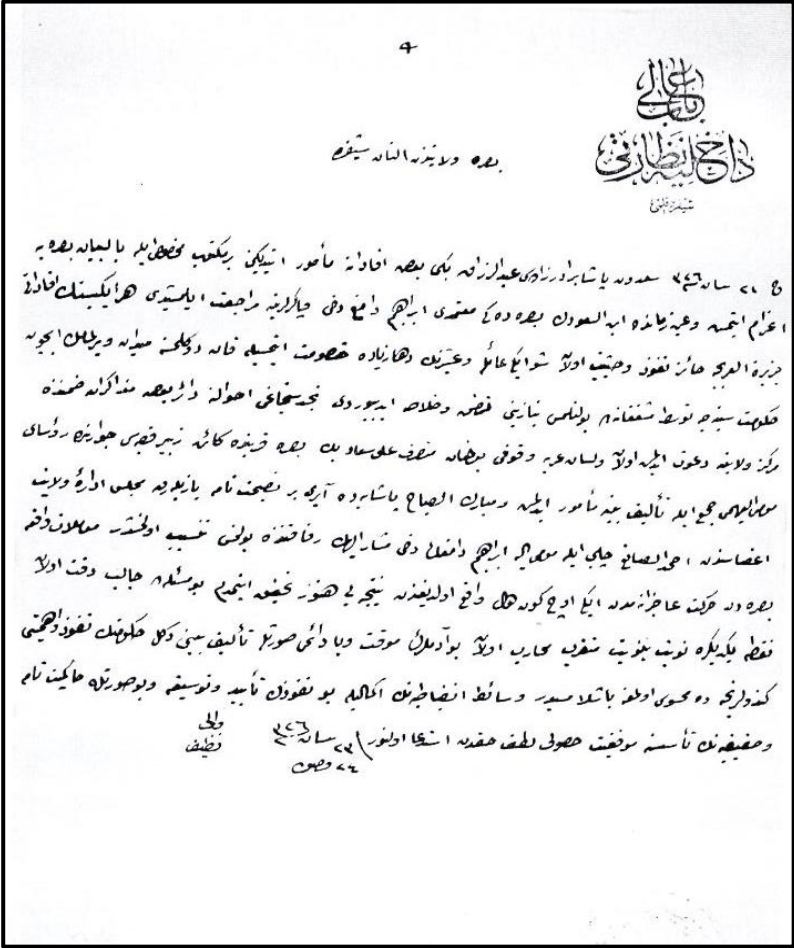 ٩
باب عالی
داخلیه نظارتی
شیفره قلمی
بصره ولایتندن النان شیفره
ج ٢١ نیسان سنه ٣٢٦ سعدون پاشا برادرزاده‌سی عبدالرزاق بكی بعض افاداته مأمور ایتدیكی بر مكتوب مخصوص ایله بالبیان بصره‌یه
اعزام ایتمش وعین زمانده ابن السعودك بصره‌ده‌كی معتمدی ابراهیم دامغ دخی مراجعت ایلمشیدی هر ایكیسنك افاداتی
جزیرة العربجه حائز نفوذ وحیثیت اولان شو ایكی عائله وعشیرتك دها زیاده خصومت ایتمسیله قان دوكلمسنه میدان ویرلمامك ایچون
حكومت سنیه‌جه توسط مشفقانه‌ده بولنلمسی نیازینی تضمن وخلاصه ایدییوردی نجد سنجاغی احوالنه دائر بعض مذاكرات ضمننده
مركز ولایته دعوت ایدیلن اولان ولسان عربه وقوفی بولنان متصرف علی سعاد بك بصره قربنده كائن زبیر قصبه‌سی جوارنده رؤسای
مومی الیهمی جمع ایله تألیف بینه مأمور ایدلمش ومبارك الصباح پاشایه‌ده آیری بر نصیحتنامه یازیله‌رق مجلس ادارهٔ ولایت
اعضاسندن احمد الصانع چلبی ایله مومی الیه ابراهیم دامغك دخی مشار الیهك رفاقتنده بولنمسی تنسیب اولنمشدر معاملات واقعه
بصره‌دن حركت عاجزانه‌مدن ایكی اوچ كون اول واقع اولدیغندن نتیجه‌یی هنوز تحقیق ایتمدم بو مسئله‌ده جالب دقت اولان
نقطه یكدیگره نوبت بنوبت متقرب محارب اولان بو آدملرك موقت ویا دائمی صورتله تألیف بینی دكل حكومتك نفوذ واهمیتی
كندولرنجه‌ده محسوس اولمغه باشلامسیدر وسائط انضباطیه‌نك اكمالیله بو نفوذك تأیید وتوسیعنه وبو صورتله حاكمیت تامه
وحقیقیه‌نك تأسیسنه موفقیت حصولی لطف حقدن استدعا اولنور ٢٣ نیسان سنه ٣٢٦
والی
نظیف